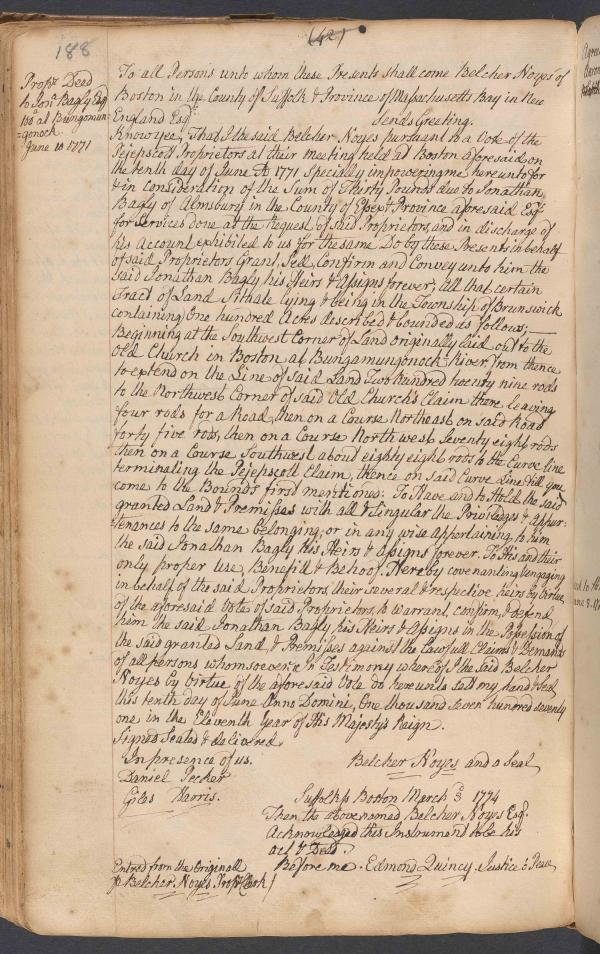 (42)
188
Prop.rs Deed
to Jon.a Bagly Esq
100 at Bungomun=
=gonock
June 10 1771
To all Persons unto whom these Presents shall come Belcher Noyes of
Boston in the County of Suffolk & Province of Massachusetts Bay in New
England Esq.r Sends Greeting.
Know yee, That I the said Belcher Noyes pursuant to a Vote of the
Pejepscott Proprietors at their meeting held at Boston aforesaid on
the tenth day of June A 1771 Specially impowering me hereunto for
& in consideration of the Sum of Thirty Pounds due to Jonathan
Bagly of Almsbury in the County of Essex & Province aforesaid Esq.r
for Services done at the Request of said Proprietors, and in discharge of
his Account exhibited to us for the same Do by these Presents in behalf
of said Proprietors Grant, Sell, Confirm and Convey unto him the
said Jonathan Bagly his Heirs & Assigns forever, all that certain
Tract of Land Sittuate lying & being in the Township of Brunswick
containing One hundred Acres described & bounded as follows;
Beginning at the Southwest Corner of Land originally laid out to the
Old Church in Boston at Bungamungonock River, from thence
to extend on the Line of said Land Two hundred twenty nine rods
to the Northwest Corner of said Old Church's Claim there leaving
four rods for a Road, then on a Course Northeast on said Road
forty five rods, then on a Course North west Seventy eight rods
then on a Course Southwest about eighty eight rods to the Curve line
terminating the Pejepscott Claim, thence on said Curve Line till you
come to the Bounds first mentioned: To Have and to Hold the said
granted Land & Premisses with all & Singular the Priviledges & appur=
=tenances to the same belonging, or in any wise appertaining to him
the said Jonathan Bagly his Heirs & Assigns forever. To His and their
only proper Use, Benefit & Behoof. Hereby covenanting & engaging
in behalf of the said Proprietors, their several & respective heirs by Virtue
of the aforesaid Vote of said Proprietors, to warrant, confirm, & defend
him the said Jonathan Bagly, his Heirs & Assigns in the Possession of
the said granted Land & Premisses against the Lawfull Claims & Demands
of all persons whomsoever. In Testimony whereof I the said Belcher
Noyes by Virtue of the aforesaid Vote do hereunto sett my hand & Seal
this tenth day of June Anno Domini, One thousand seven hundred seventy
one in the Eleventh Year of His Majesty's Reign.
Signed Sealed & delivered
In presence of us. Belcher Noyes and a Seal
Daniel Pecker
Giles Harris.
Suffolk ss Boston March 3 1774
Then the above named Belcher Noyes Esq.r
Acknowledged this Instrument to be his
act & Deed.
Before me. Edmond Quincy Justice Peace
Entred from the Originall
p Belcher Noyes Prop.rs Clerk